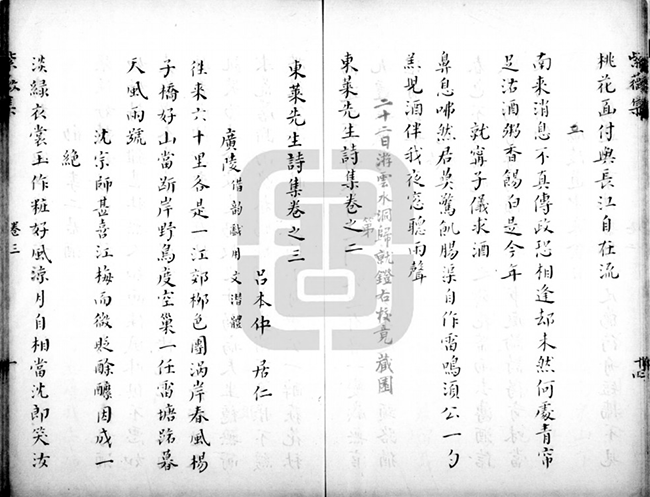 紫薇集
桃花面付與長江自在流
五
南來消息不真傳政恐相逢却未然何處青帘
足沽酒粥香餳白是今年
就甯子儀求酒
鼻息咈然君莫驚飢腸渠自作雷鳴須公一勺
羔兒酒伴我夜窓聽雨聲
二十二日游雲水洞歸就鐙右校竟 藏園
東萊先生詩集卷之二
第
東萊先生詩集卷之三
呂本仲 居仁
廣陵借韵戲用文潛體
徃來六十里各是一江郊柳色圍渦岸春風楊
子橋好山當斷岸野鳥度空巢一任雷塘路暮
天風雨號
沈宗師甚喜江梅而微貶酴醾因成一
絶
淡緑衣裳玉作粧好風涼月自相當沈郎笑汝
卷三
一